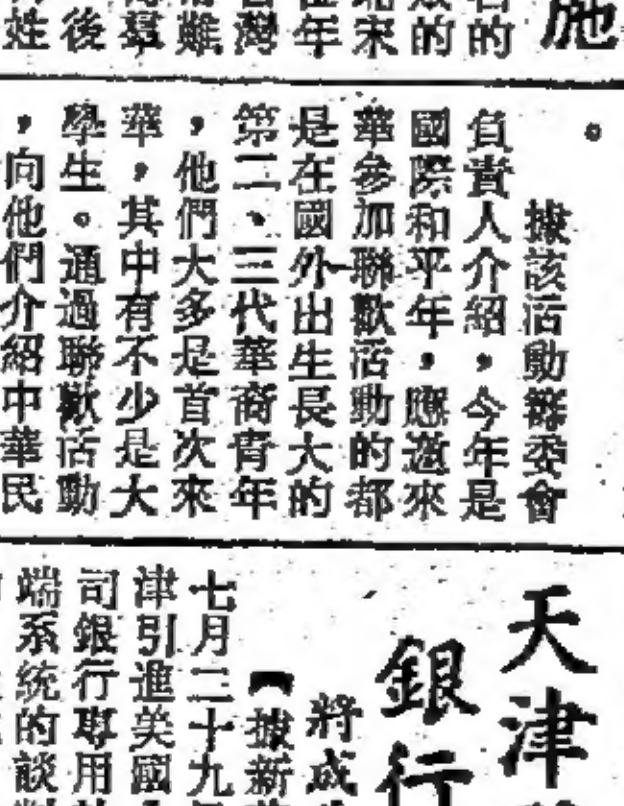 施
的
的
宋
年
灣
難
羣
後
姓
。
據該活動籌委會
負責人介紹,今年是
國際和平年,應邀來
華參加聯歡活動的都
是在國外出生長大的
第二、三代華裔青年
,他們大多是首次來
華,其中有不少是大
學生。通過聯歡活動
,向他們介紹中華民
天津
銀行
將成
【據新
七月二十九
津引進美國
司銀行專用
端系統的談